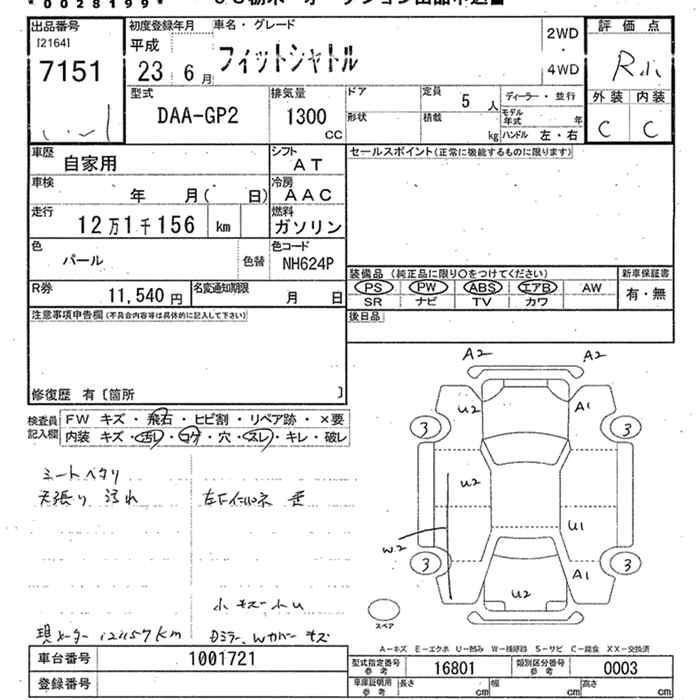 *0028199*
出品番号 初度登録年月 車名・グレード 2WD 評価点
[2164] 平成 フィットシャトル ・ R
7151 23 6月 4WD 外装 内装
型式 排気量 ドア 定員 5人 ディーラー・並行 C C
DAA-GP2 1300 形状 積載 モデル年式 年
CC kg ハンドル 左・右
車歴 自家用 シフト AT セールスポイント(正常に機能するものに限ります)
車検 年 月( 日) 冷房 AAC
走行 12万1千156 km 燃料 ガソリン
色 パール 色替 色コード NH624P
装備品 (純正品に限り○をつけてください) 新車保証書
PS PW ABS エアB AW 有・無
SR ナビ TV カワ
R券 11,540円 名変通知期限 月 日
注意事項申告欄(不具合内容等は具体的に記入して下さい) 後日品
修復歴 有〔箇所 〕
検査員記入欄 FW キズ・飛石・ヒビ割・リペア跡・×要
内装 キズ・汚レ・コゲ・穴・スレ・キレ・破レ
A2 A2
U2 A1
3 3
U2
U1
W2
3 A1 3
U2
シートヘタリ
天張り 汚れ
現メーター 121157km
スペア
A-キズ E-エクボ U-凹み W-補修跡 S-サビ C-腐食 XX-交換済
車台番号 1001721 型式指定番号参考 16801 類別区分番号参考 0003
登録番号 車庫証明用参考 長さ cm 幅 cm 高さ cm